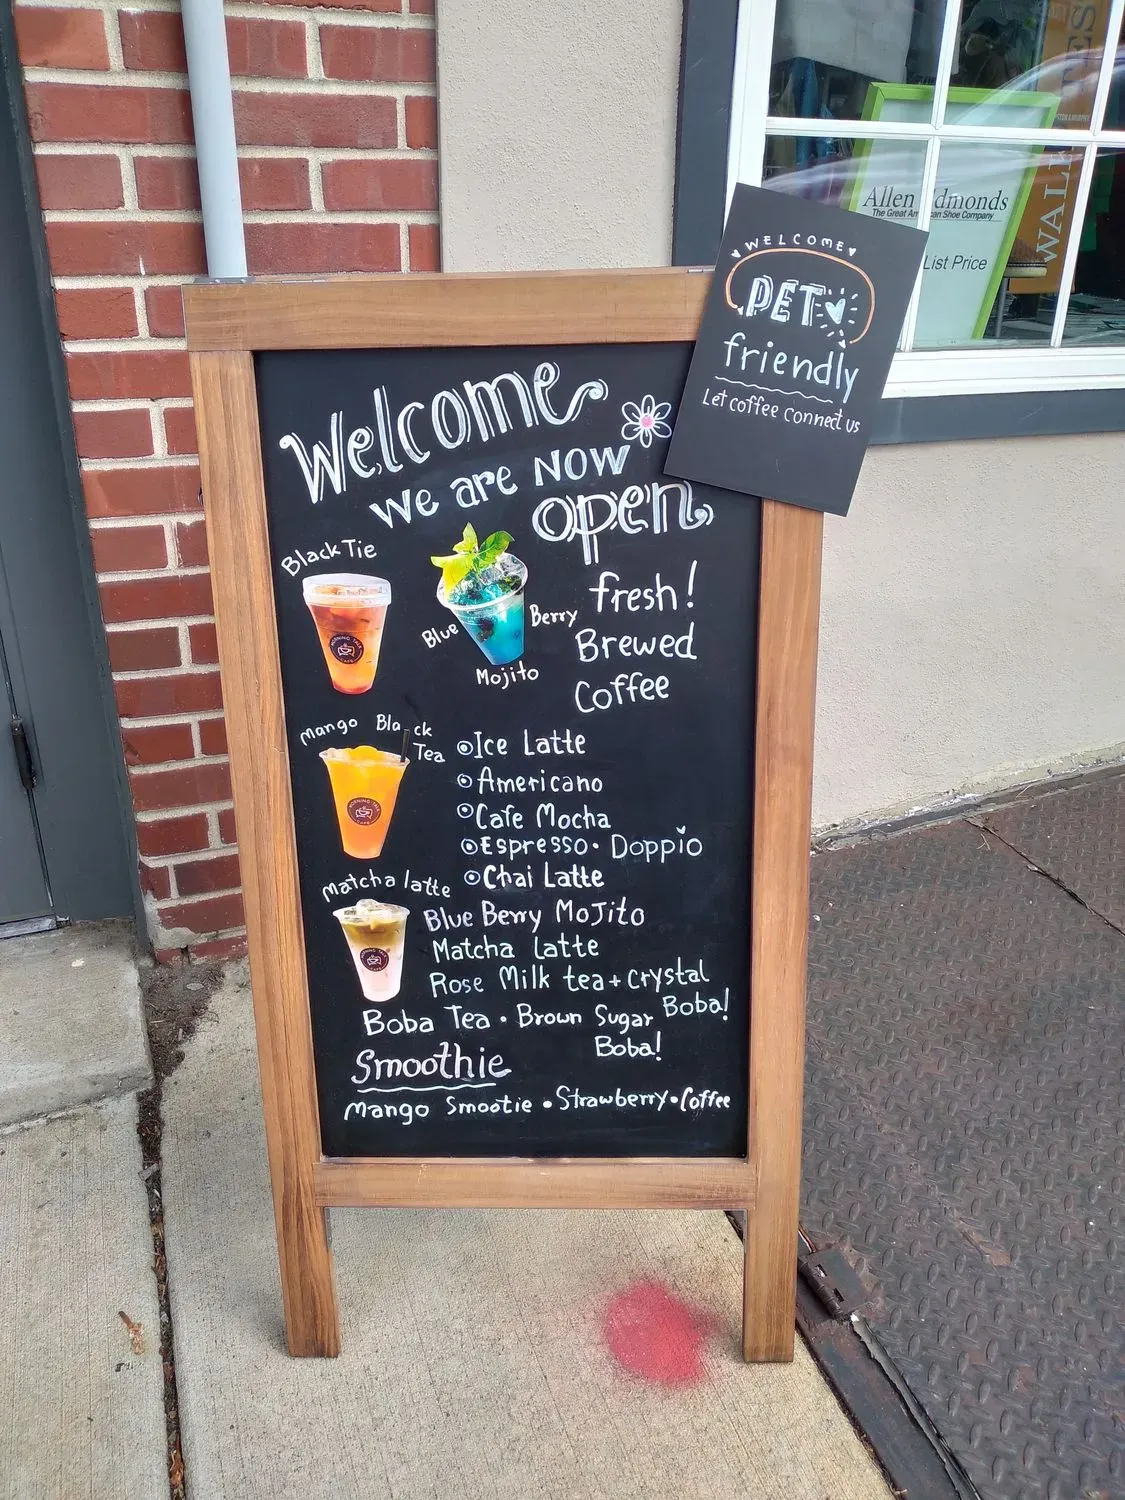 WELCOME
PET
friendly
Let coffee connect us
Allen Edmonds
The Great American Shoe Company
List Price
WALK
Welcome
we are NOW
open
Black Tie
Blue Berry
Mojito
fresh!
Brewed
Coffee
MORNING TALK
CAFE
Mango Black
Tea
MORNING TALK
CAFE
Ice Latte
Americano
Cafe Mocha
Espresso • Doppio
Chai Latte
Matcha latte
MORNING TALK
CAFE
Blue Berry MoJito
Matcha latte
Rose Milk tea + Crystal
Boba!
Boba Tea • Brown Sugar
Boba!
Smoothie
Mango Smootie • Strawberry • Coffee